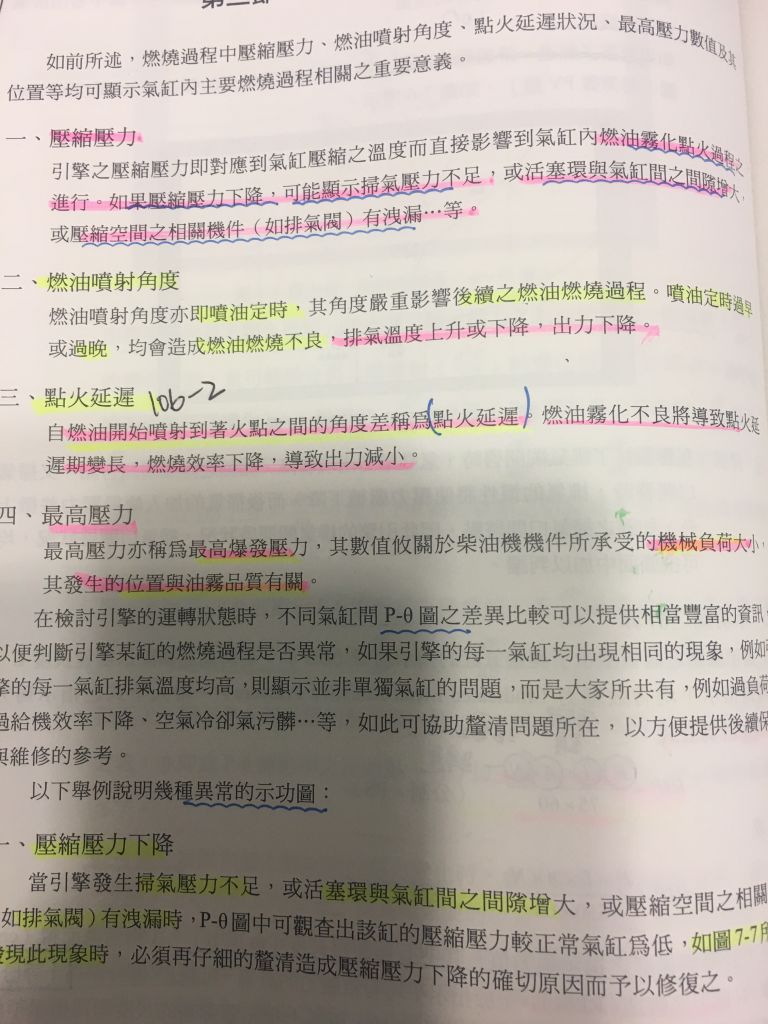 如前所述，燃燒過程中壓縮壓力、燃油噴射角度、點火延遲狀況、最高壓力數值及其
位置等均可顯示氣缸內主要燃燒過程相關之重要意義。
一、壓縮壓力
引擎之壓縮壓力即對應到氣缸壓縮之溫度而直接影響到氣缸內燃油霧化點火過程之
進行。如果壓縮壓力下降，可能顯示掃氣壓力不足，或活塞環與氣缸間之間隙增大，
或壓縮空間之相關機件（如排氣閥）有洩漏…等。
二、燃油噴射角度
燃油噴射角度亦即噴油定時，其角度嚴重影響後續之燃油燃燒過程。噴油定時過早
或過晚，均會造成燃油燃燒不良，排氣溫度上升或下降，出力下降。
三、點火延遲 106-2
自燃油開始噴射到著火點之間的角度差稱爲(點火延遲)。燃油霧化不良將導致點火延
遲期變長，燃燒效率下降，導致出力減小。
四、最高壓力
最高壓力亦稱爲最高爆發壓力，其數值攸關於柴油機機件所承受的機械負荷大小，
其發生的位置與油霧品質有關。
在檢討引擎的運轉狀態時，不同氣缸間 P-θ 圖之差異比較可以提供相當豐富的資訊，
以便判斷引擎某缸的燃燒過程是否異常，如果引擎的每一氣缸均出現相同的現象，例如
擎的每一氣缸排氣溫度均高，則顯示並非單獨氣缸的問題，而是大家所共有，例如過負荷
過給機效率下降、空氣冷卻氣污髒…等，如此可協助釐清問題所在，以方便提供後續保
與維修的參考。
以下舉例說明幾種異常的示功圖：
一、壓縮壓力下降
當引擎發生掃氣壓力不足，或活塞環與氣缸間之間隙增大，或壓縮空間之相關
如排氣閥）有洩漏時，P-θ 圖中可觀查出該缸的壓縮壓力較正常氣缸爲低，如圖 7-7 所
發現此現象時，必須再仔細的釐清造成壓縮壓力下降的確切原因而予以修復之。